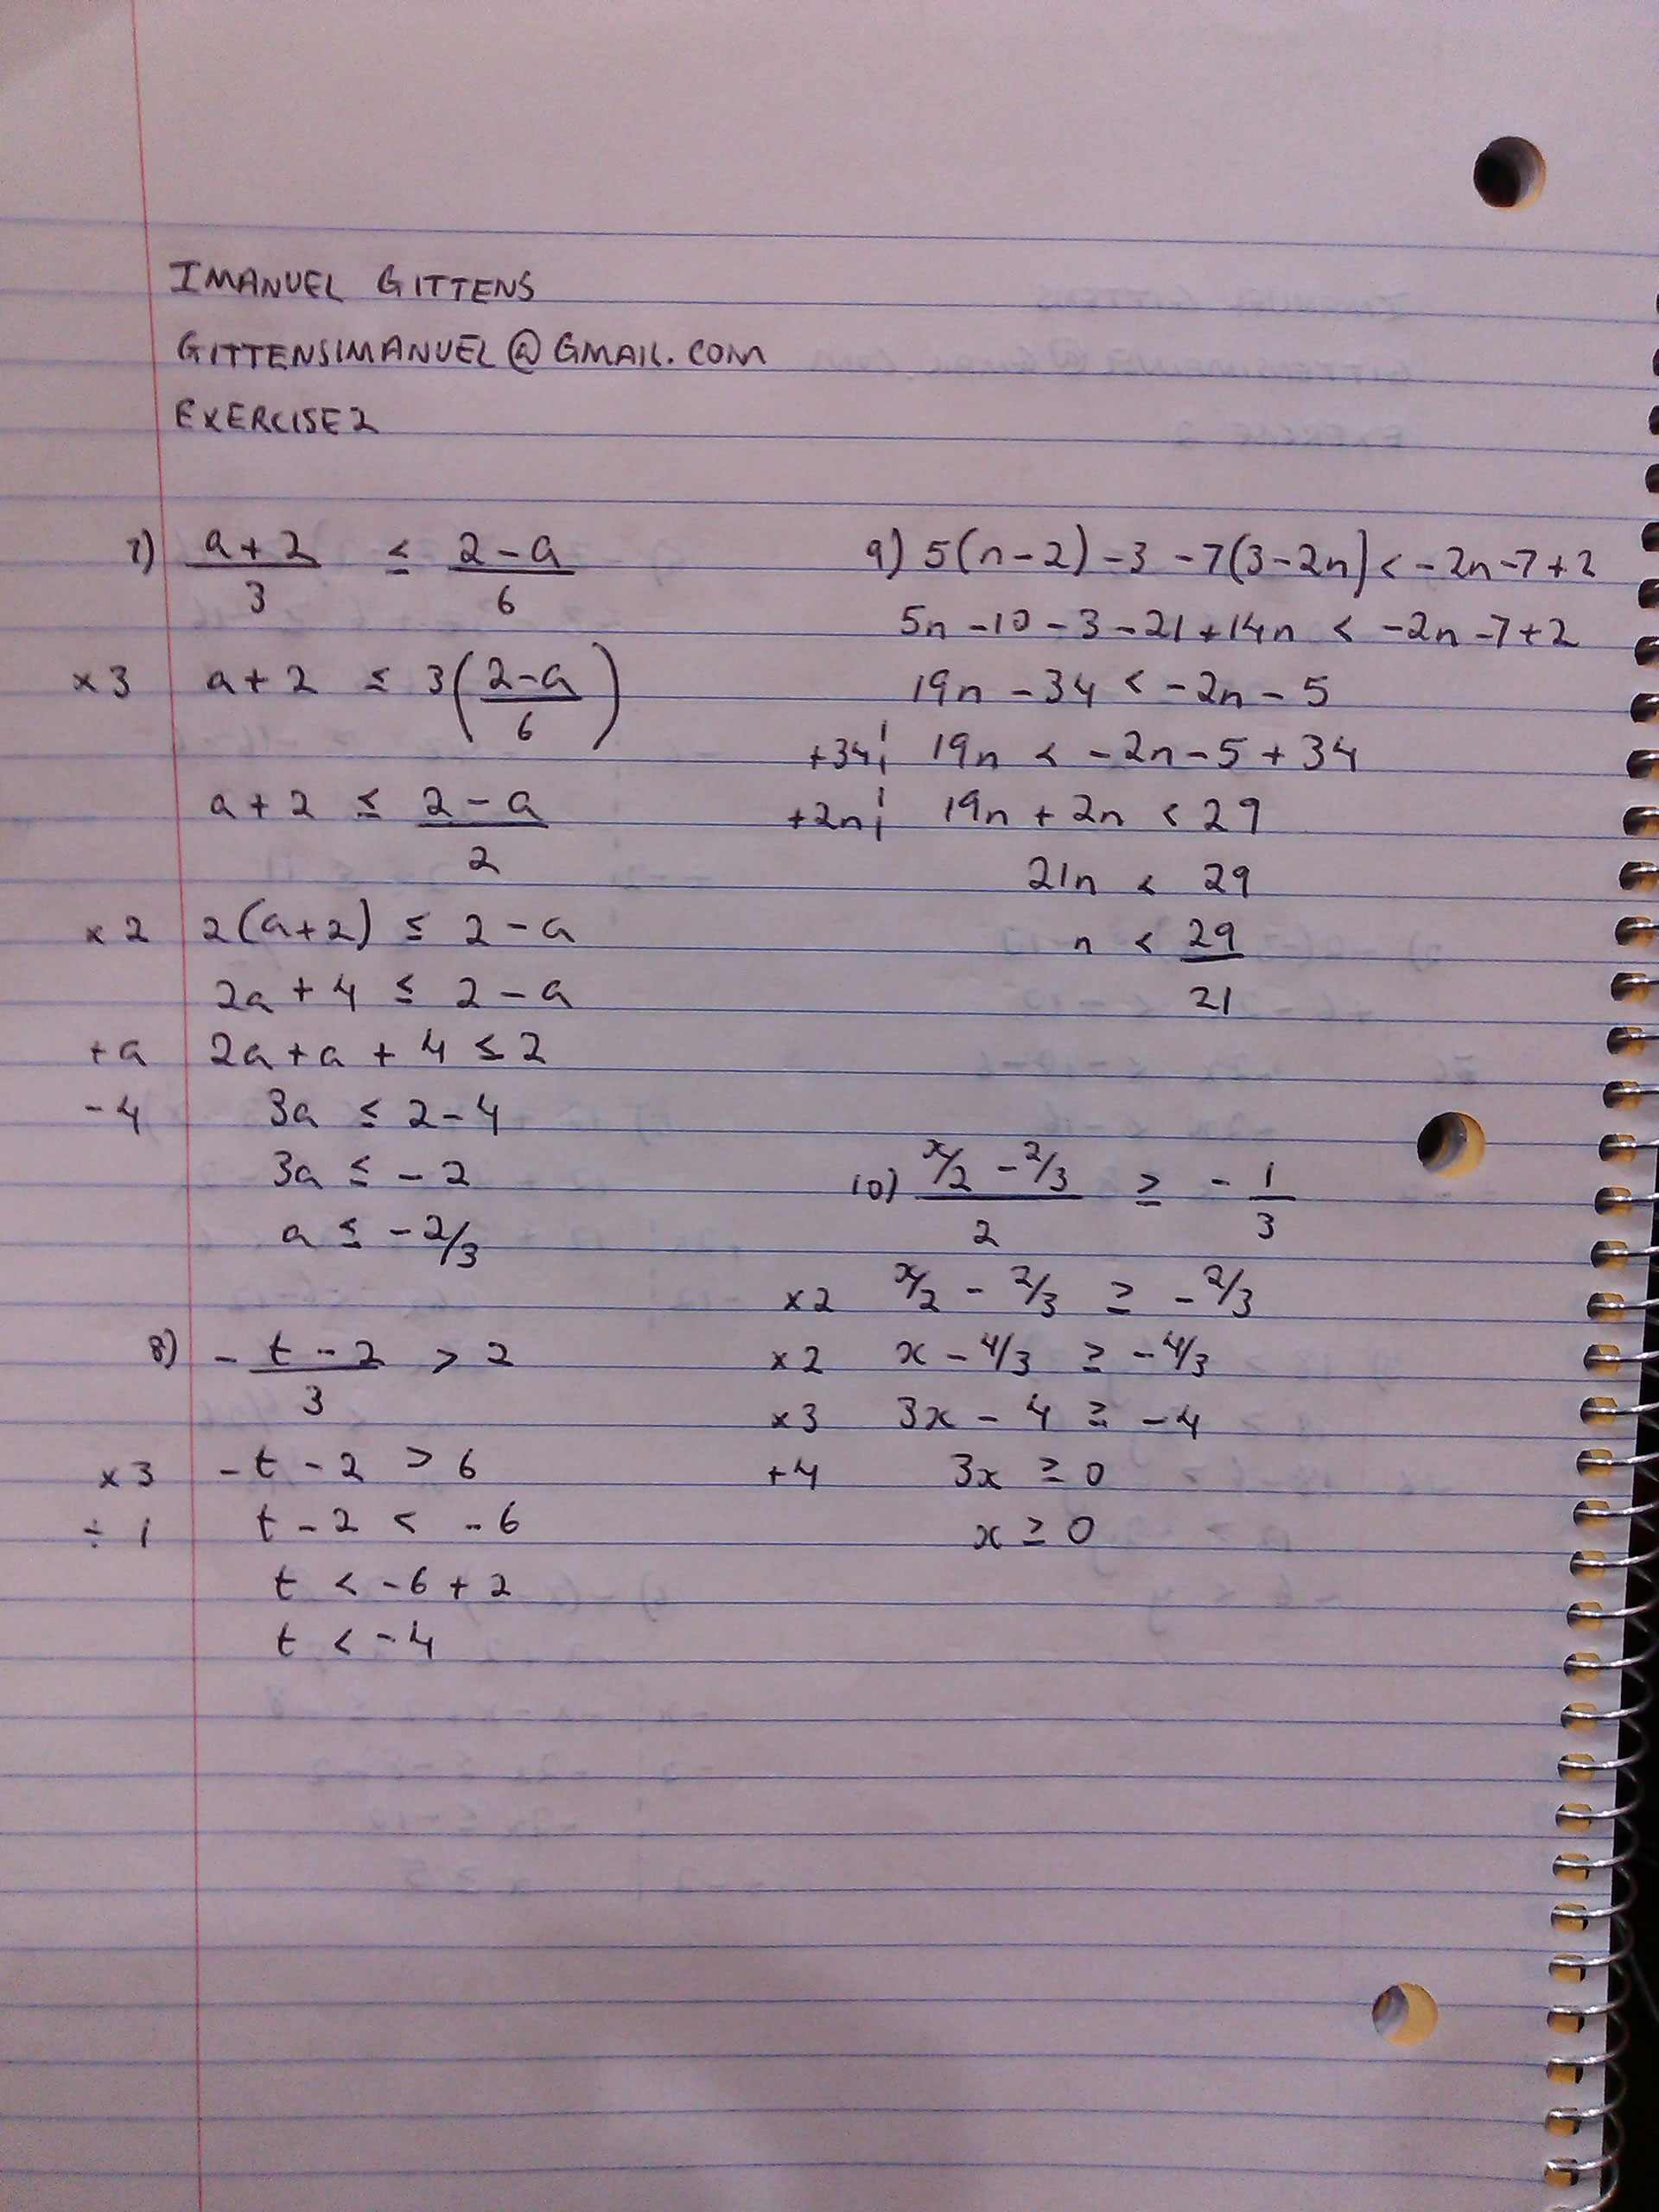 IMANUEL GITTENS
GITTENSIMANUEL@GMAIL.COM
EXERCISE2
7) (a+2)/3 ≤ (2-a)/6
x3 a+2 ≤ 3((2-a)/6)
a+2 ≤ (2-a)/2
x2 2(a+2) ≤ 2-a
2a+4 ≤ 2-a
+a 2a+a+4 ≤ 2
-4 3a ≤ 2-4
3a ≤ -2
a ≤ -2/3
8) -(t-2)/3 > 2
x3 -t-2 > 6
÷1 t-2 < -6
t < -6+2
t < -4
9) 5(n-2)-3-7(3-2n) < -2n-7+2
5n-10-3-21+14n < -2n-7+2
19n-34 < -2n-5
+34¦ 19n < -2n-5+34
+2n¦ 19n+2n < 29
21n < 29
n < 29/21
10) (x/2-2/3)/2 ≥ -1/3
x2 x/2-2/3 ≥ -2/3
x2 x-4/3 ≥ -4/3
x3 3x-4 ≥ -4
+4 3x ≥ 0
x ≥ 0